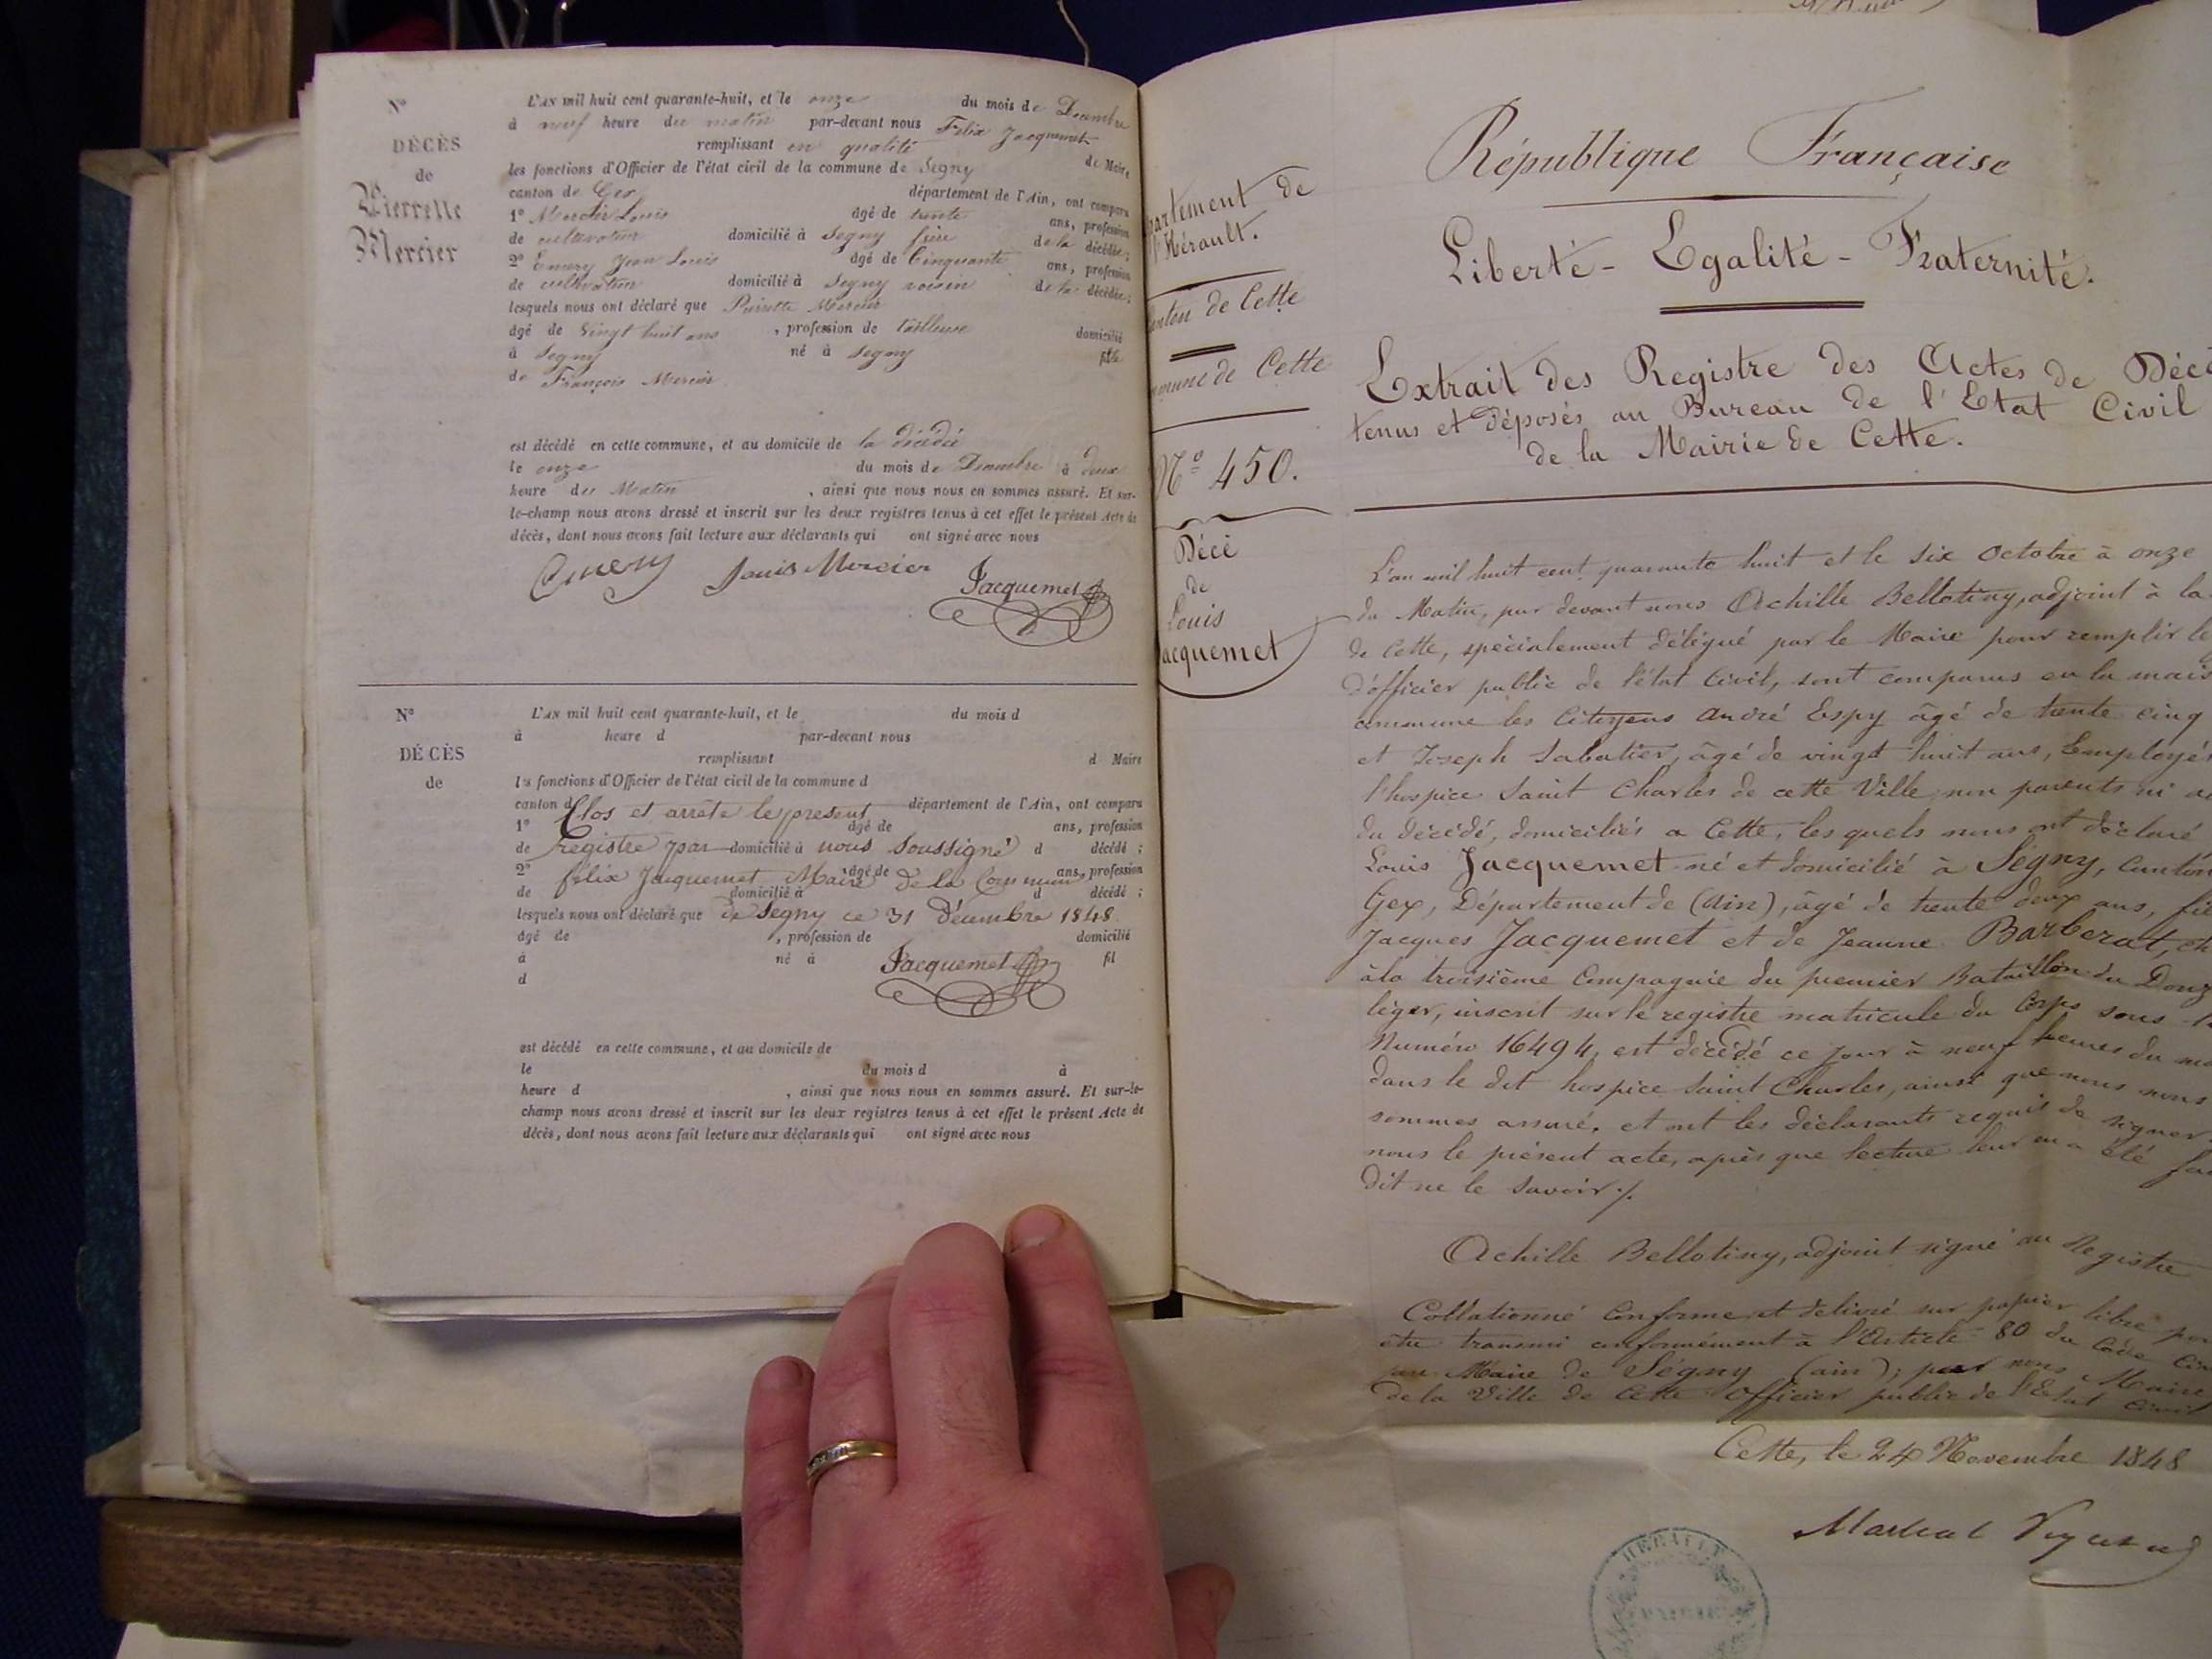 N°
DÉCÈS
de
Pierrette
Mercier
L'AN mil huit cent quarante-huit, et le onze du mois de Décembre
à neuf heure du matin par-devant nous Félix Jacquemet
remplissant en qualité de Maire
les fonctions d'Officier de l'état civil de la commune de Segny
canton de Gex département de l'Ain, ont comparu
1° Mercier Louis âgé de trente ans, profession
de cultivateur domicilié à Segny frère de la décédée;
2° Emery Jean Louis âgé de Cinquante ans, profession
de cultivateur domicilié à Segny voisin de la décédée;
lesquels nous ont déclaré que Pierrette Mercier
âgé de Vingt huit ans , profession de tailleuse domicilié
à Segny né à Segny fille
de François Mercier
est décédé en cette commune, et au domicile de la décédée
le onze du mois de Décembre à deux
heure du Matin , ainsi que nous nous en sommes assuré. Et sur-
le-champ nous avons dressé et inscrit sur les deux registres tenus à cet effet le présent Acte de
décès, dont nous avons fait lecture aux déclarants qui ont signé avec nous
Emery Louis Mercier Jacquemet
N°
DÉCÈS
de
L'AN mil huit cent quarante-huit, et le du mois d
à heure d par-devant nous
remplissant d Maire
les fonctions d'Officier de l'état civil de la commune d
canton d département de l'Ain, ont comparu
Clos et arrête le présent
1° âgé de ans, profession
de domicilié à d décédé ;
registre par nous soussigné
2° âgé de ans, profession
félix Jacquemet Maire de la Commune
de domicilié à d décédé ;
lesquels nous ont déclaré que de Segny ce 31 Décembre 1848.
âgé de , profession de domicilié
à né à fil
d
Jacquemet
est décédé en cette commune, et au domicile de
le du mois d à
heure d , ainsi que nous nous en sommes assuré. Et sur-le-
champ nous avons dressé et inscrit sur les deux registres tenus à cet effet le présent Acte de
décès, dont nous avons fait lecture aux déclarants qui ont signé avec nous
partement de
l'Hérault.
anton de Cette
mmune de Cette
N° 450.
Décé
de
Louis
acquemet
République Française
Liberté - Egalité - Fraternité.
Extrait des Registre des Actes de Décè
tenus et déposés au Bureau de l'Etat Civil
de la Mairie de Cette.
L'an mil huit cent quarante huit et le six Octobre à onze
du Matin, par devant nous Achille Bellotiny, adjoint à la
de Cette, spécialement délégué par le Maire pour remplir le
d'officier public de l'état Civil, sont comparus en la mais
commune les Citoyens André Espy âgé de trente cinq
et Joseph Sabatier, âgé de vingt huit ans, Employés
l'hospice Saint Charles de cette Ville, non parents ni
du décédé, domiciliés a Cette, lesquels nous ont déclaré
Louis Jacquemet né et domicilié à Ségny, canton
Gex, Département de (Ain), âgé de trente deux ans, fils
Jacques Jacquemet et de Jeanne Barberat,
à la troisième Compagnie du premier Bataillon du Douz
léger, inscrit sur le registre matricule du Corps sous le
Numéro 16494, est décédé ce jour à neuf heures du ma
dans le dit hospice Saint Charles, ainsi que nous nous
sommes assuré, et ont les déclarants requis de signer
nous le présent acte, après que lecture leur en a été fai
dit ne le savoir ./.
Achille Bellotiny, adjoint signé au Registre
Collationné Conforme et délivré sur papier libre pou
être transmi conformément à l'Article 80 du Code Civ
au Maire de Ségny (ain); par nous Maire
de la Ville de Cette Officier public de l'Etat Civil
Cette, le 24 Novembre 1848
HERAULT